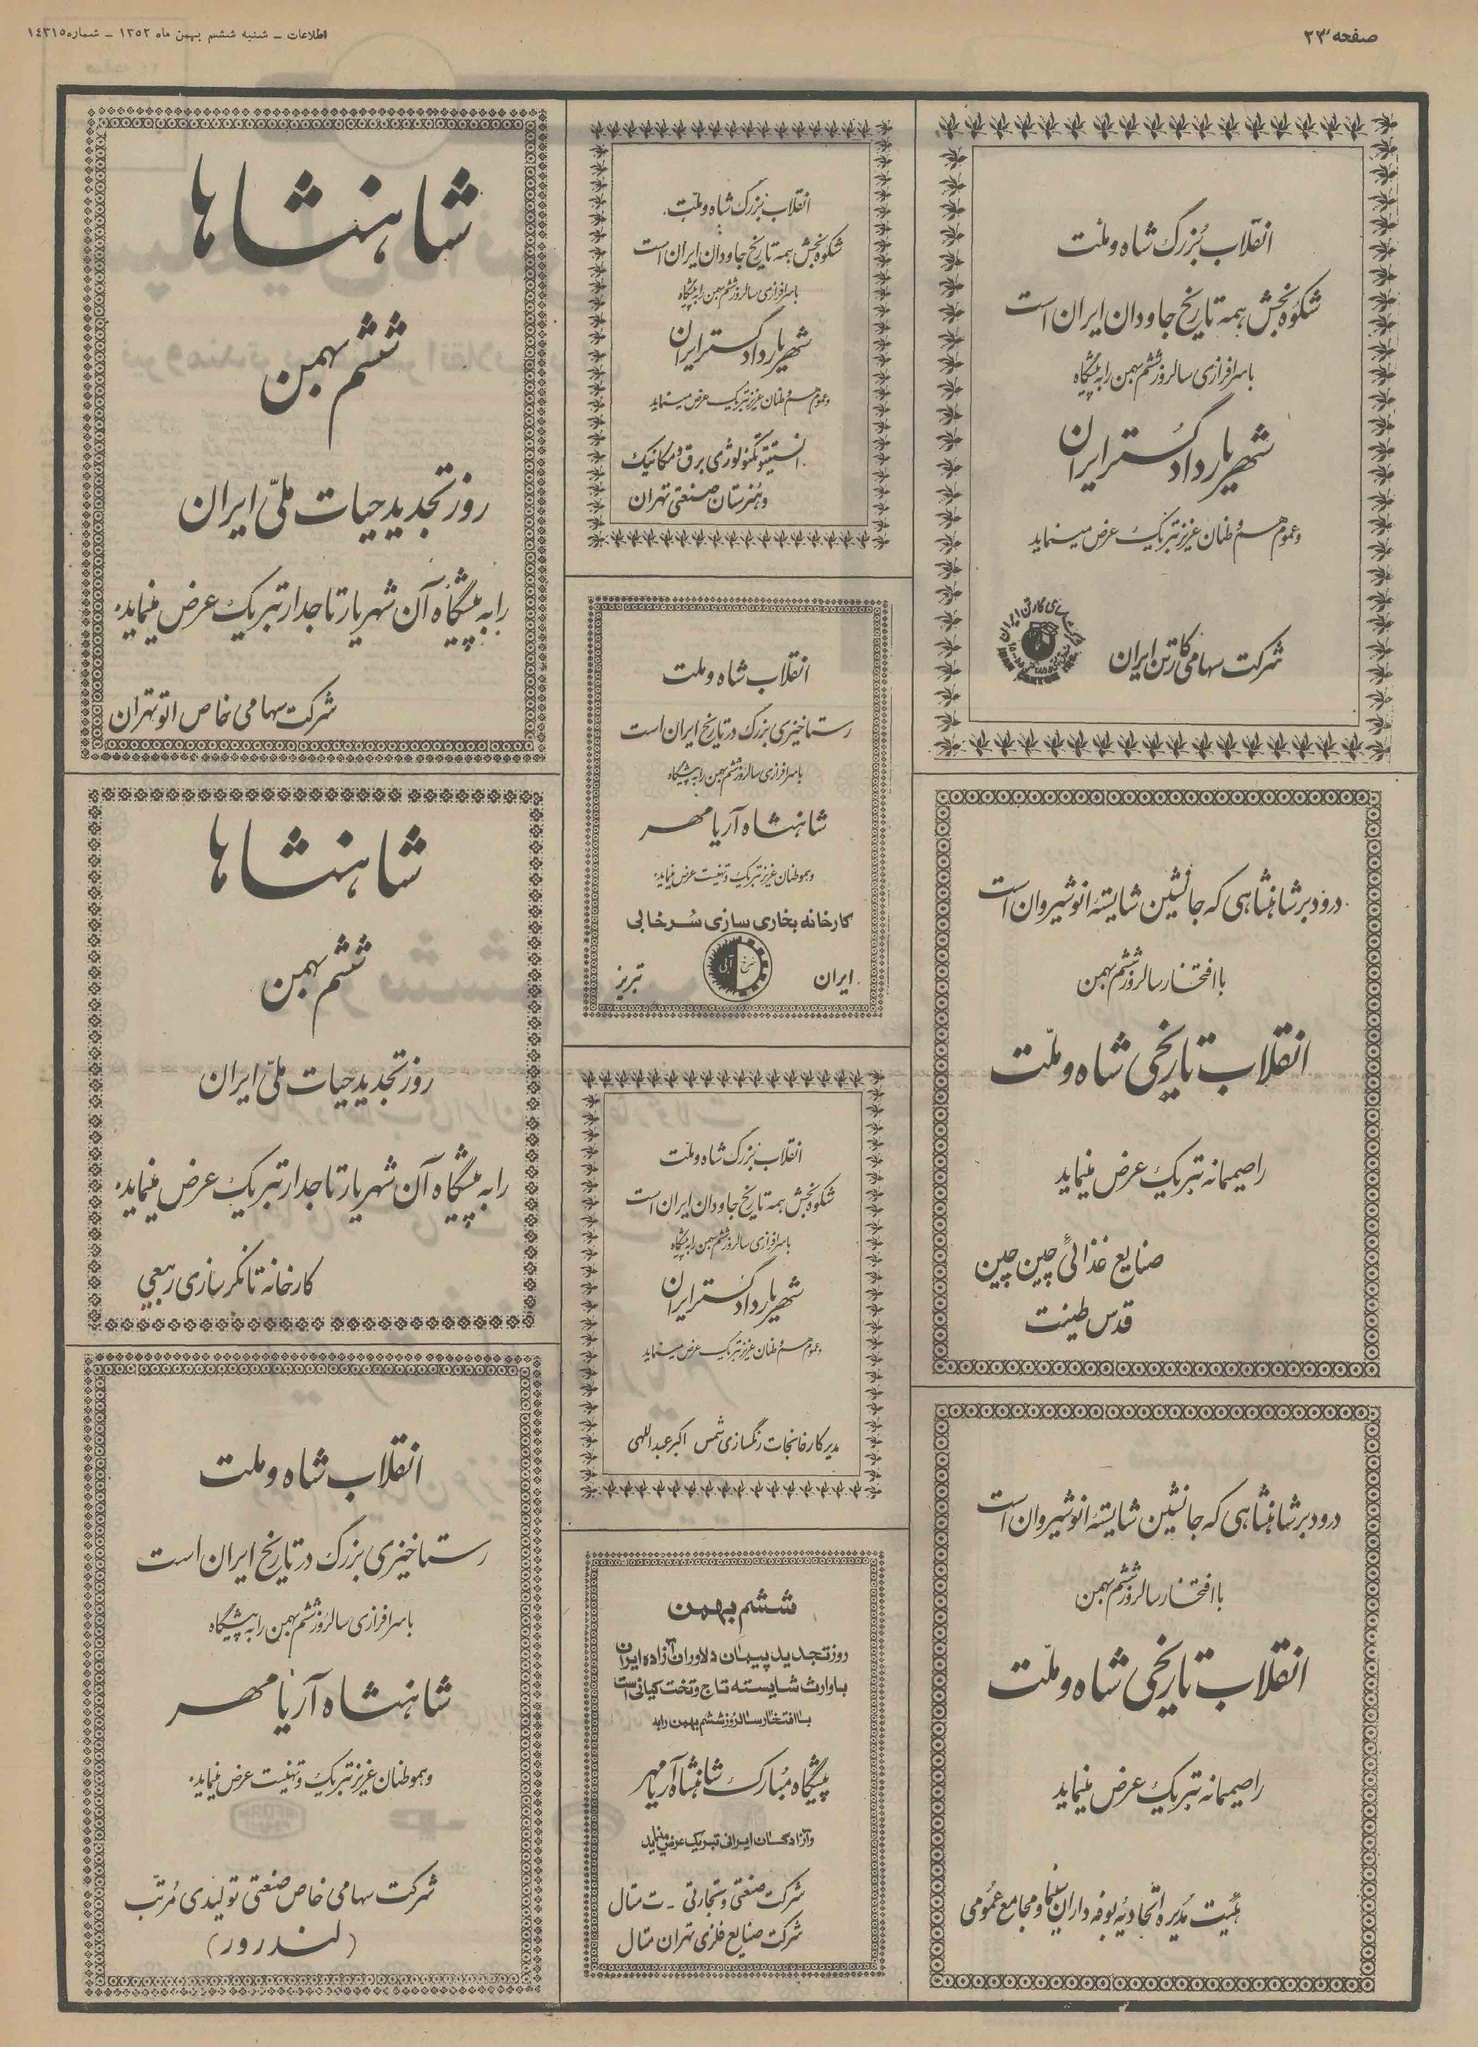 صفحه ۲۳
اطلاعات ـ شنبه ششم بهمن ماه ۱۳۵۲ ـ شماره ۱۴۳۱۵
انقلاب بزرگ شاه و ملت
شکوه بخش همه تاریخ جاودان ایران است
با سرافرازی سالروز ششم بهمن را به پیشگاه
شهریار دادگستر ایران
و عموم هم وطنان عزیز تبریک عرض مینماید
شرکت سهامی کارتن ایران
درود بر شاهنشاهی که جانشین شایسته انوشیروان است
با افتخار سالروز ششم بهمن
انقلاب تاریخی شاه و ملّت
را صمیمانه تبریک عرض مینماید
صنایع غذائی چین چین
قدس طینت
درود بر شاهنشاهی که جانشین شایسته انوشیروان است
با افتخار سالروز ششم بهمن
انقلاب تاریخی شاه و ملّت
را صمیمانه تبریک عرض مینماید
هیئت مدیره اتحادیه بوفه داران سینما و مجامع عمومی
انقلاب بزرگ شاه و ملت
شکوه بخش همه تاریخ جاودان ایران است
با سرافرازی سالروز ششم بهمن را به پیشگاه
شهریار دادگستر ایران
و عموم هم وطنان عزیز تبریک عرض مینماید
انستیتو تکنولوژی برق و مکانیک
و هنرستان صنعتی تهران
انقلاب شاه و ملت
رستاخیزی بزرگ در تاریخ ایران است
با سرافرازی سالروز ششم بهمن را به پیشگاه
شاهنشاه آریا مهر
و هموطنان عزیز تبریک و تهنیت عرض مینماید.
کارخانه بخاری سازی سرخابی
ایران سرخ آبی تبریز
انقلاب بزرگ شاه و ملّت
شکوه بخش همه تاریخ جاودان ایران است
با سرافرازی سالروز ششم بهمن را به پیشگاه
شهریار دادگستر ایران
و عموم هم وطنان عزیز تبریک عرض مینماید
مدیر کارخانجات رنگسازی شمس اکبر عبداللهی
ششم بهمن
روز تجدید پیمان دلاوران آزاده ایران
با وارث شایسته تاج و تخت کیانی است
با افتخار سالروز ششم بهمن را به
پیشگاه مبارک شاهنشاه آریامهر
و آزادگان ایرانی تبریک عرض مینماید
شرکت صنعتی و تجارتی ـ ت متال
شرکت صنایع فلزی تهران متال
شاهنشاها
ششم بهمن
روز تجدید حیات ملّی ایران
را به پیشگاه آن شهریار تاجدار تبریک عرض مینماید.
شرکت سهامی خاص اتو تهران
شاهنشاها
ششم بهمن
روز تجدید حیات ملّی ایران
را به پیشگاه آن شهریار تاجدار تبریک عرض مینماید.
کارخانه تانکر سازی ربیعی
انقلاب شاه و ملت
رستاخیزی بزرگ در تاریخ ایران است
با سرافرازی سالروز ششم بهمن را به پیشگاه
شاهنشاه آریا مهر
و هموطنان عزیز تبریک و تهنیت عرض مینماید.
شرکت سهامی خاص صنعتی تولیدی مرتّب
(لندرور)